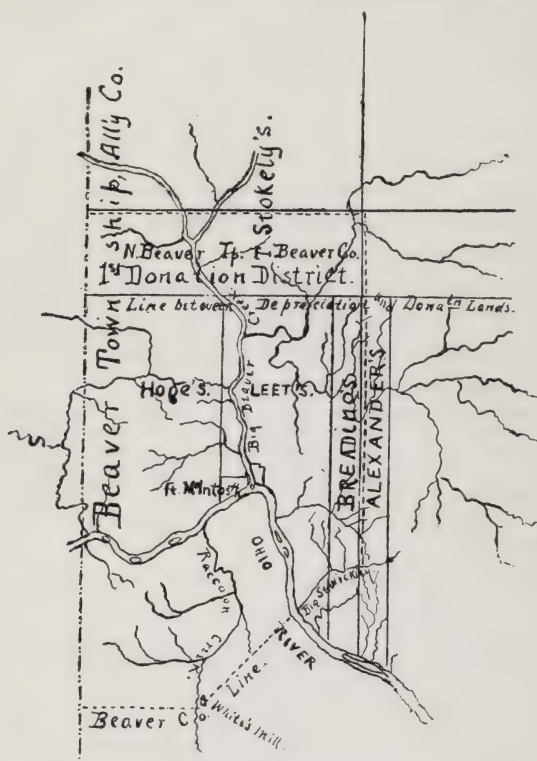 Beaver Township, All'y Co.
Stokely's.
N. Beaver Tp. Beaver Co.
1st Donation District.
Line between Depreciation and Donatn Lands.
Hoge's.
LEET'S.
BREADINGS
ALEXANDERS
Big Beaver Cr.
Ft. McIntosh
OHIO
RIVER
Raccoon
Creek
Big
Line
Beaver Co.
White's Mill.